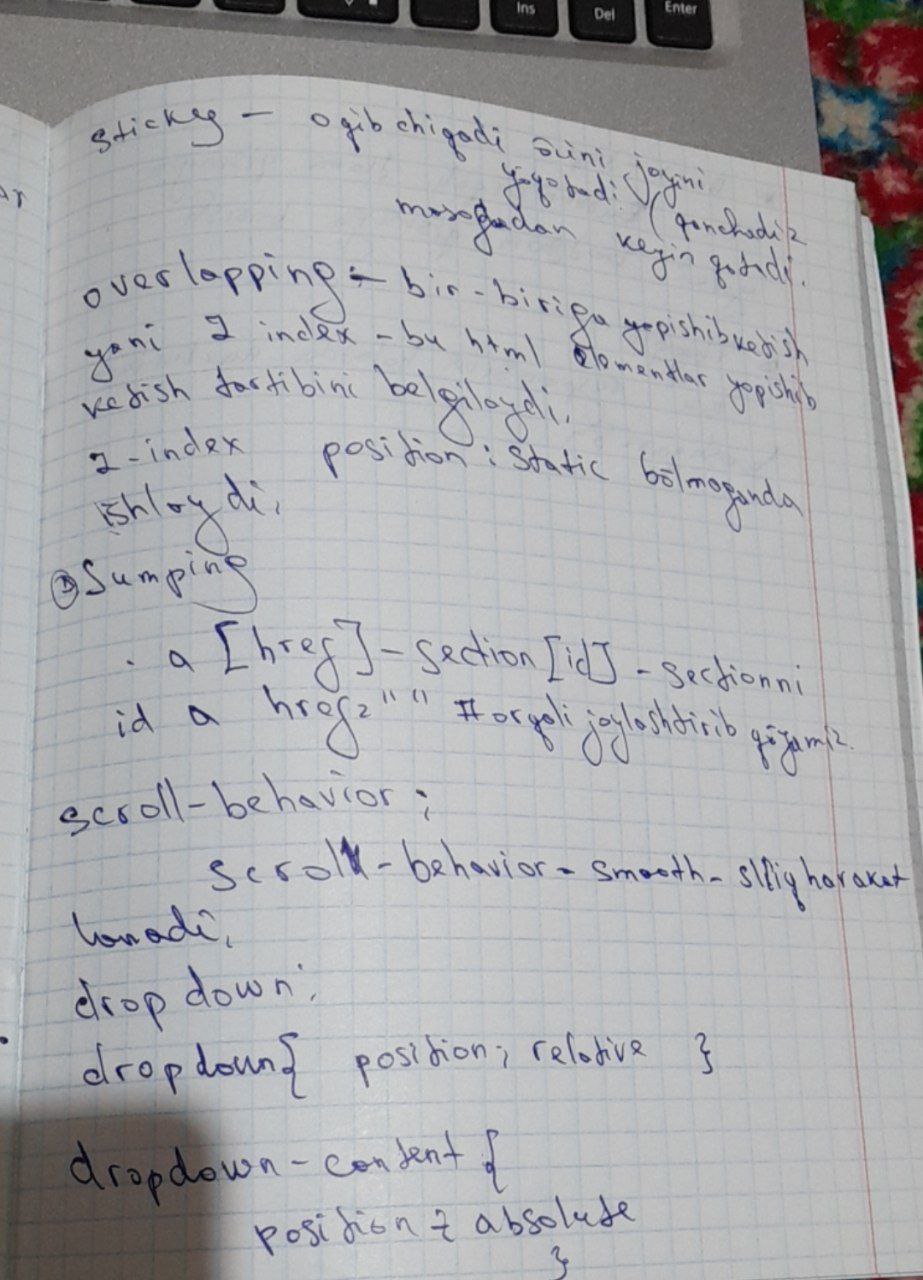 Ins
Del
Enter
stickey - oqib chiqadi özini joyini
yöqotadi (qanchadir
masofadan keyin qotadi.
overlapping - bir-biriga yopishib ketish
yani z index - bu html elementlar yopishib
ketish tartibini belgilaydi,
z-index position : static bölmaganda
ishlaydi,
Jumping
. a [href] - section [id] - sectionni
id a href="" # orqali joylashtirib qöyamiz.
scroll-behavior ;
scroll-behavior - smooth - silliq harakat
lanadi,
drop down ;
dropdown{ position ; relative }
dropdown-content {
position : absolute
}